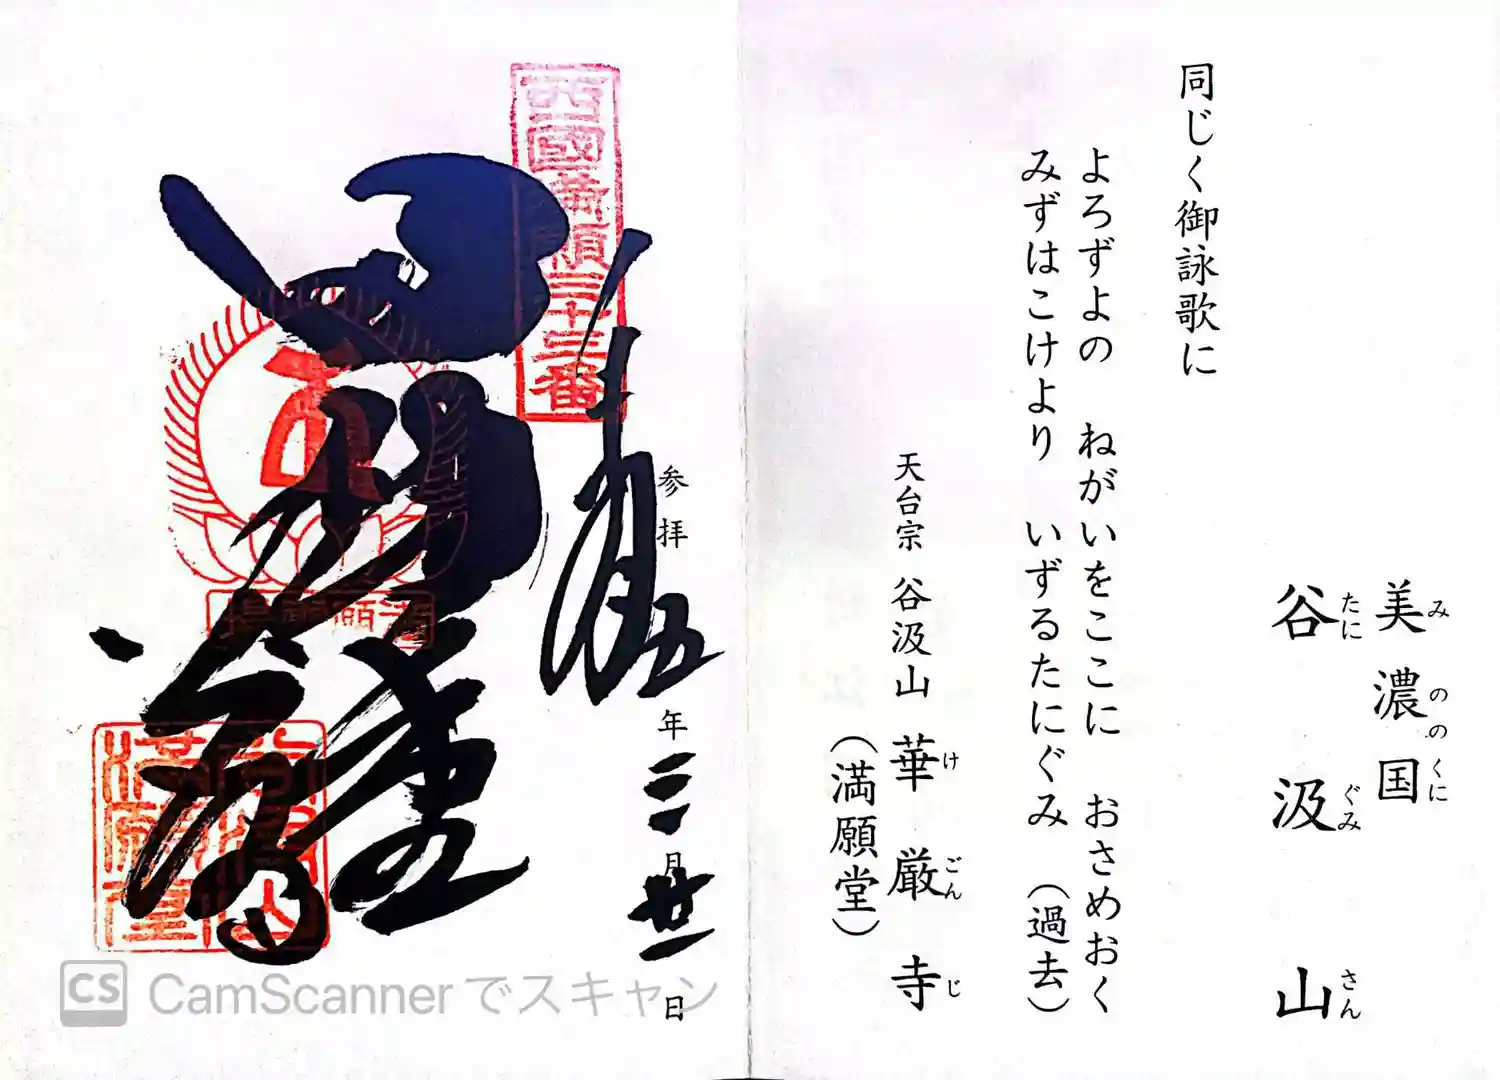 美濃国
みののくに
谷汲山
たにぐみさん
同じく御詠歌に
よろずよの ねがいをここに おさめおく
みずはこけより いずるたにぐみ (過去)
天台宗 谷汲山 華厳寺
けごんじ
(満願堂)
西國第願三十三番
参拝
年三月廿一日
満願堂
CS CamScannerでスキャン